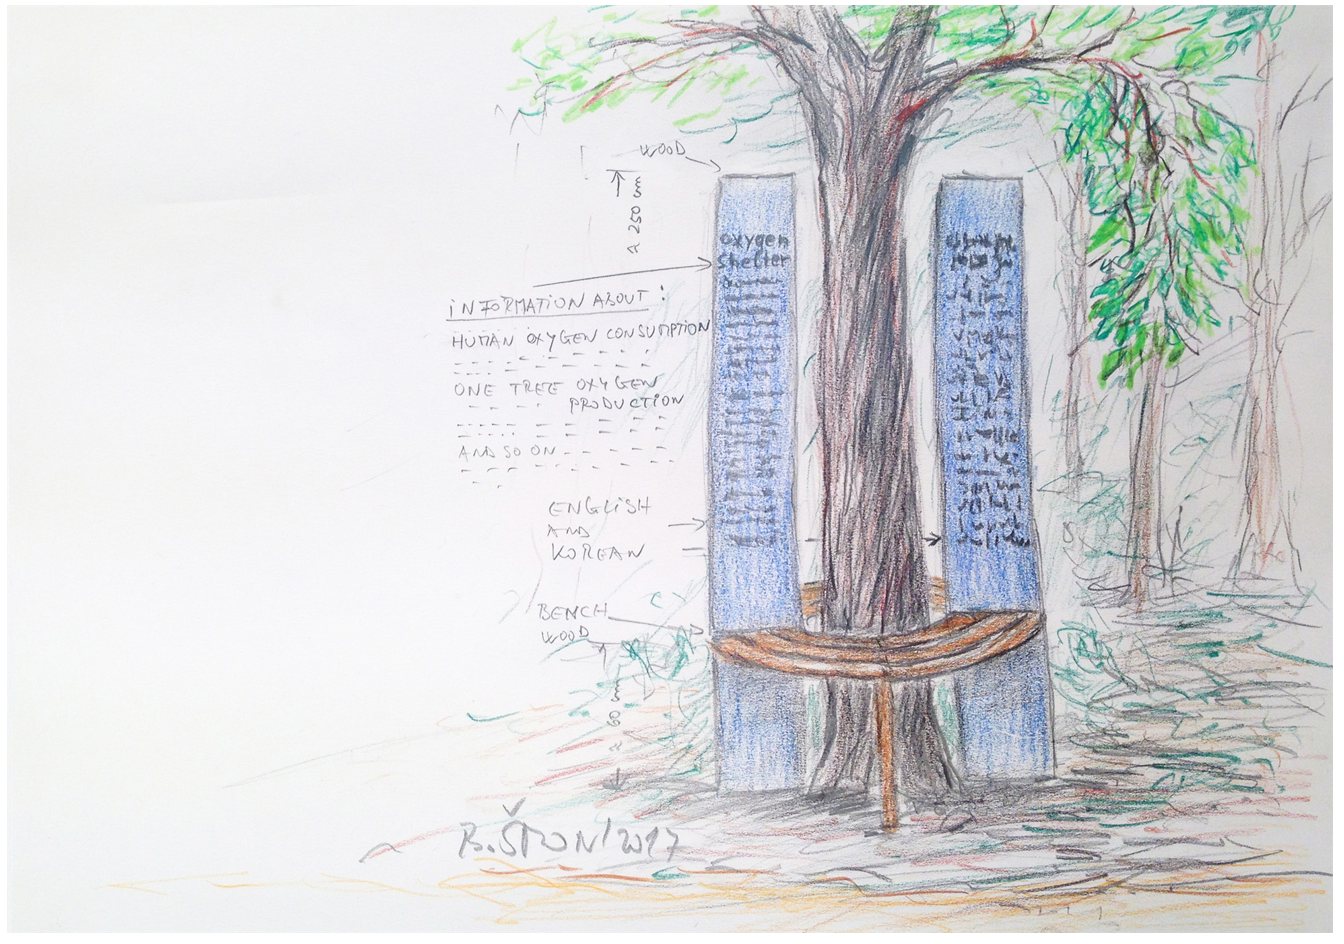 WOOD
≈ 250 cm
oxygen
Shelter
INFORMATION ABOUT:
HUMAN OXYGEN CONSUMPTION
ONE TREE OXYGEN
PRODUCTION
AND SO ON
ENGLISH
AND
KOREAN
BENCH
WOOD
B.ŠTRON/2017